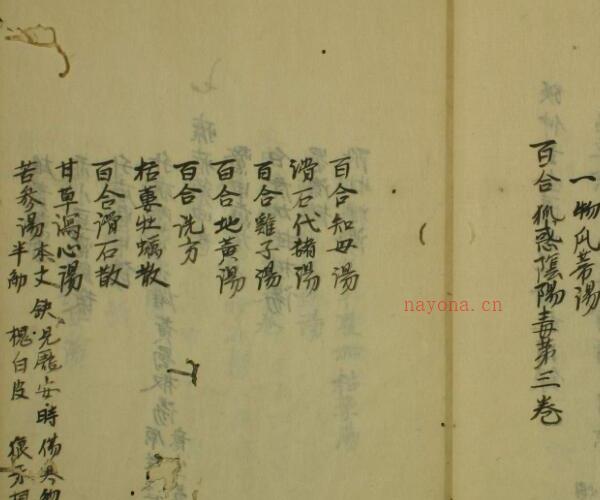 一物瓜蒂湯
百合狐惑陰陽毒第三卷
百合知母湯
滑石代赭湯
百合雞子湯
百合地黃湯
百合洗方
栝蔞牡蠣散
百合滑石散
甘草瀉心湯
苦參湯本文缺見龐安時傷寒
半觔 槐白皮
nayona.cn